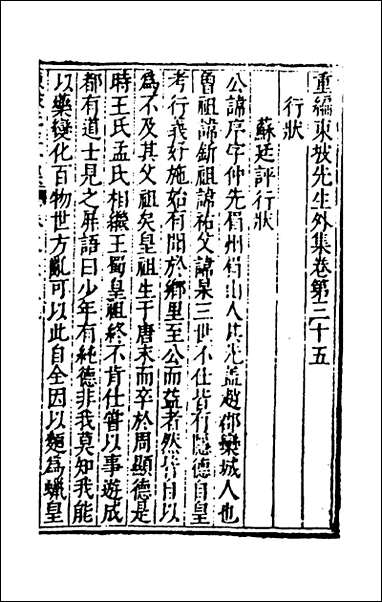 重編東坡先生外集卷第三十五
行狀
蘇廷評行狀
公諱序字仲先眉州眉山人其先蓋趙郡欒城人也
曾祖諱釿祖諱祐父諱杲三世不仕皆有隱德自皇
考行義好施始有聞於鄉里至公而益者然皆自以
為不及其父祖矣皇祖生于唐末而卒於周顯德是
時王氏孟氏相繼王蜀皇祖終不肯仕嘗以事遊成
都有道士見之屏語曰少年有純德非我莫知我能
以藥變化百物世方亂可以此自全因以麵為蠟皇